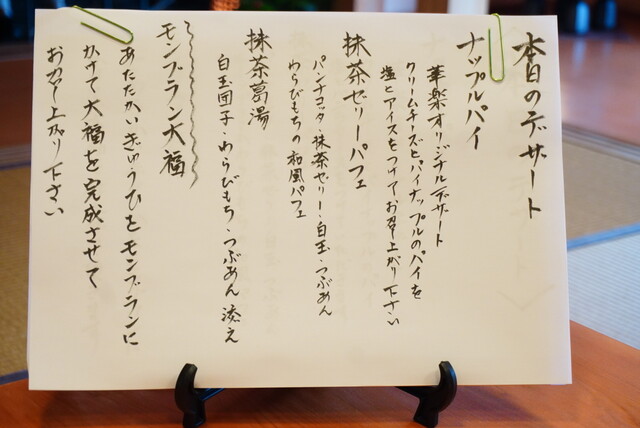 本日のデザート
ナップルパイ
華楽オリジナルデザート
クリームチーズとパイナップルのパイを
塩とアイスをつけてお召し上がり下さい
抹茶ゼリーパフェ
パンナコッタ・抹茶ゼリー・白玉・つぶあん
わらびもちの和風パフェ
抹茶葛湯
白玉団子・わらびもち・つぶあん添え
モンブラン大福
あたたかいぎゅうひをモンブランに
かけて大福を完成させて
お召し上がり下さい